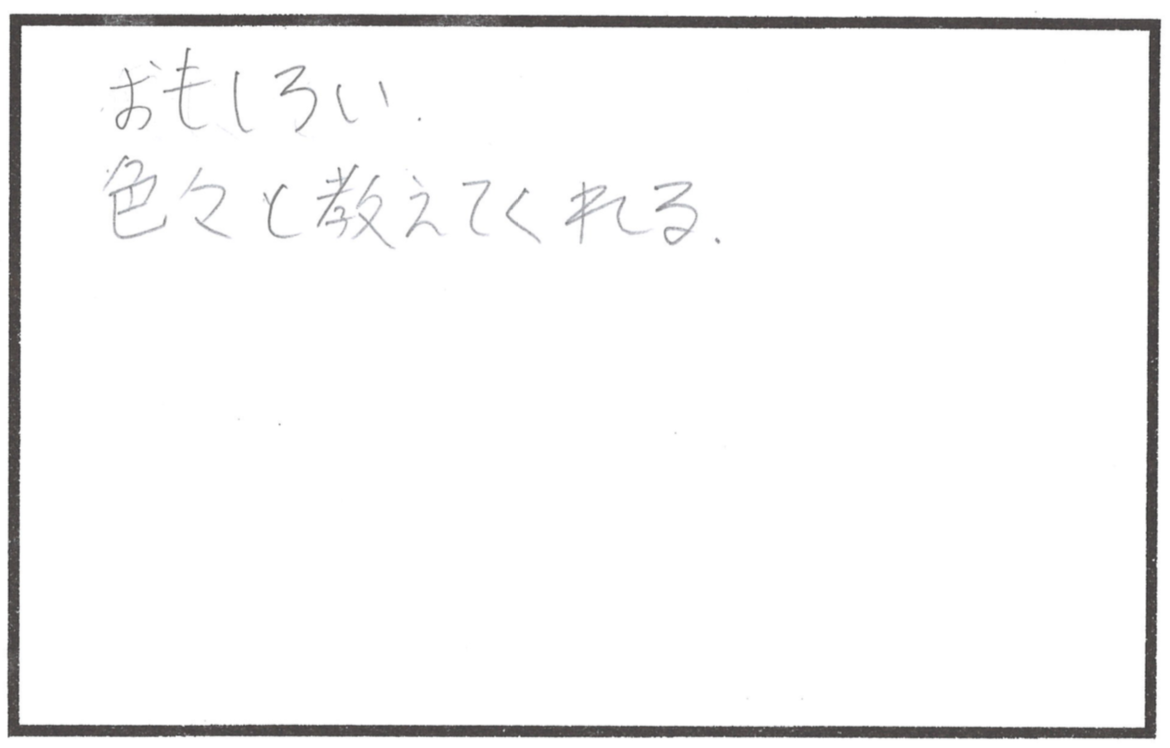 おもしろい.
色々と教えてくれる.